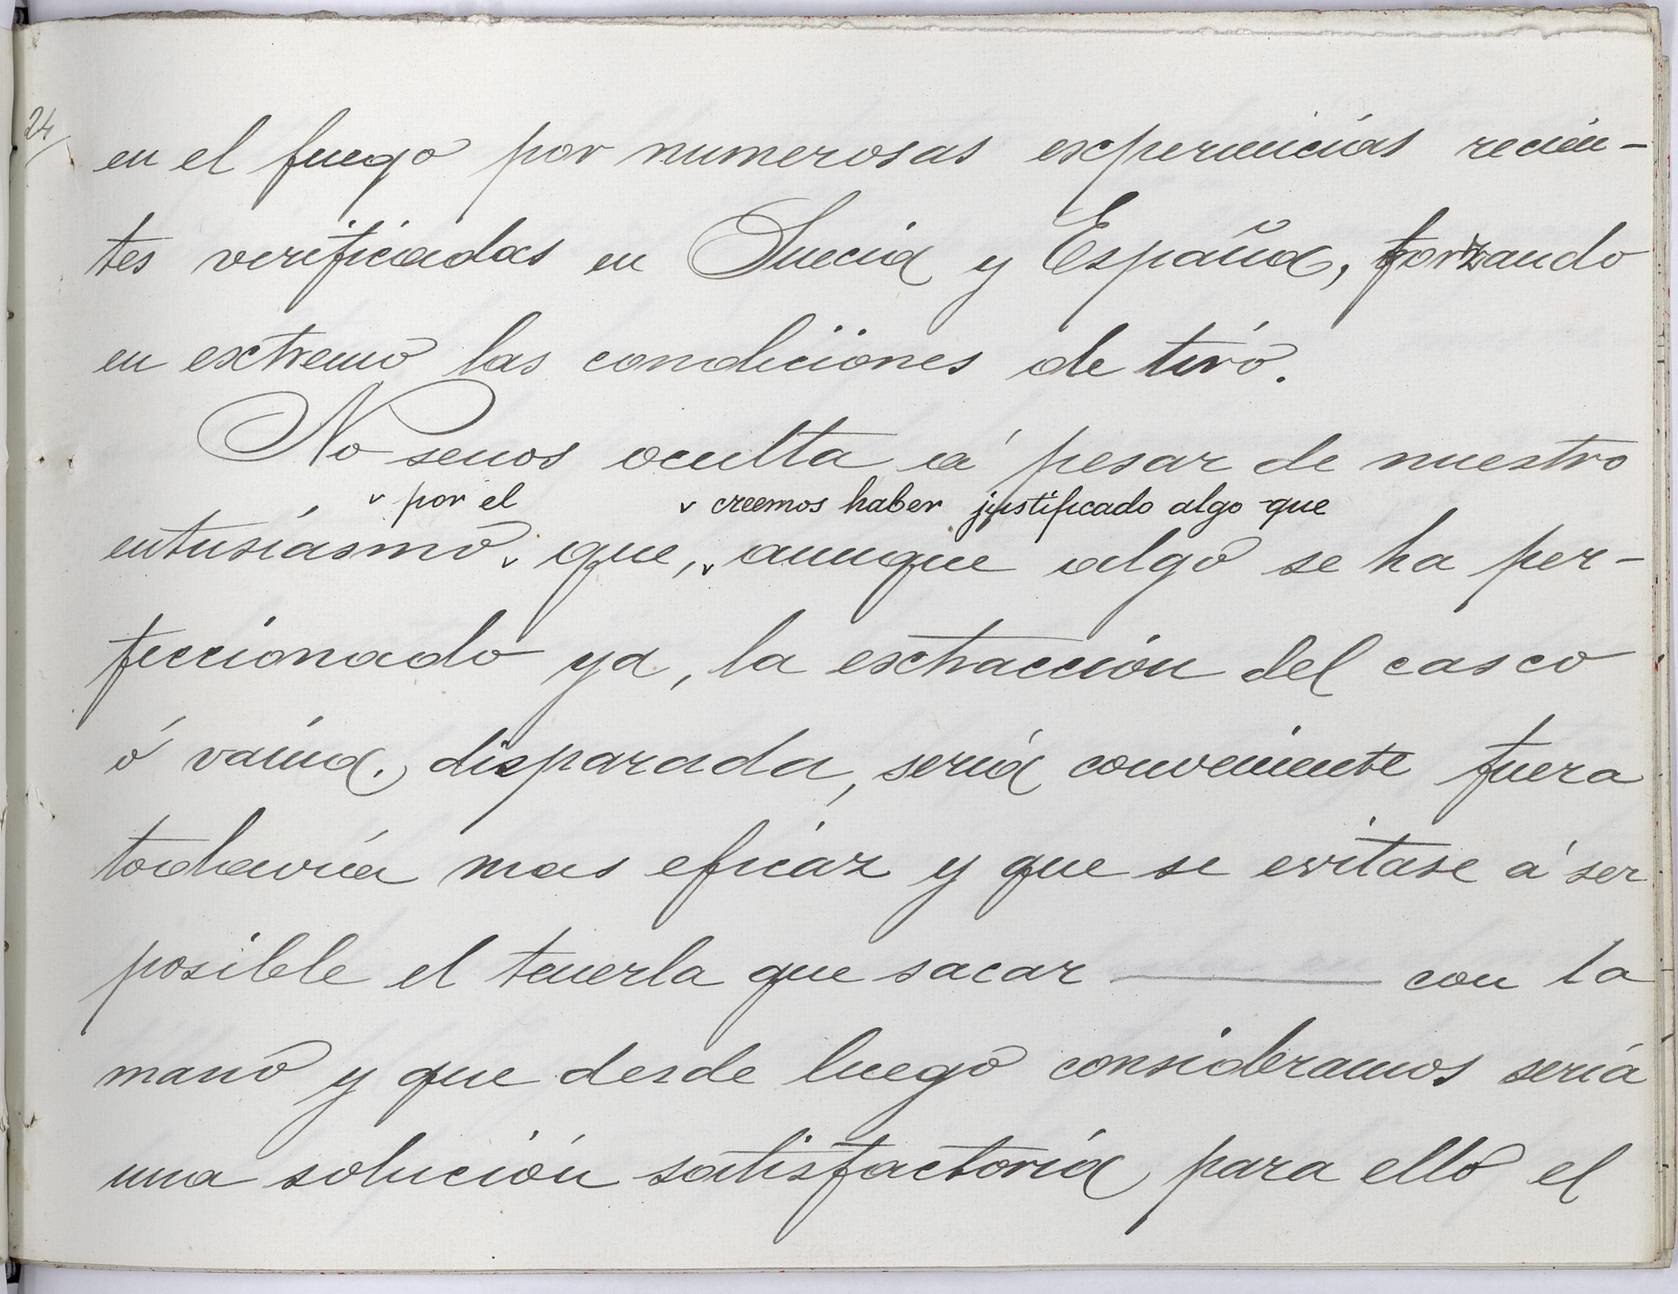 24
en el fuego por numerosas experiencias recien-
tes verificadas en Suecia y España, forzando
en extremo las condiciones de tiro.
No senos oculta á pesar de nuestro
v por el v creemos haber justificado algo que
entusiasmo v que, v aunque algo se ha per-
feccionado ya, la extracción del casco
ó vaina. disparada, seria conveniente fuera
todavia mas eficaz y que se evitase á ser
posible el tenerla que sacar ——— con la
mano y que desde luego consideramos sería
una solución satisfactoria para ello el